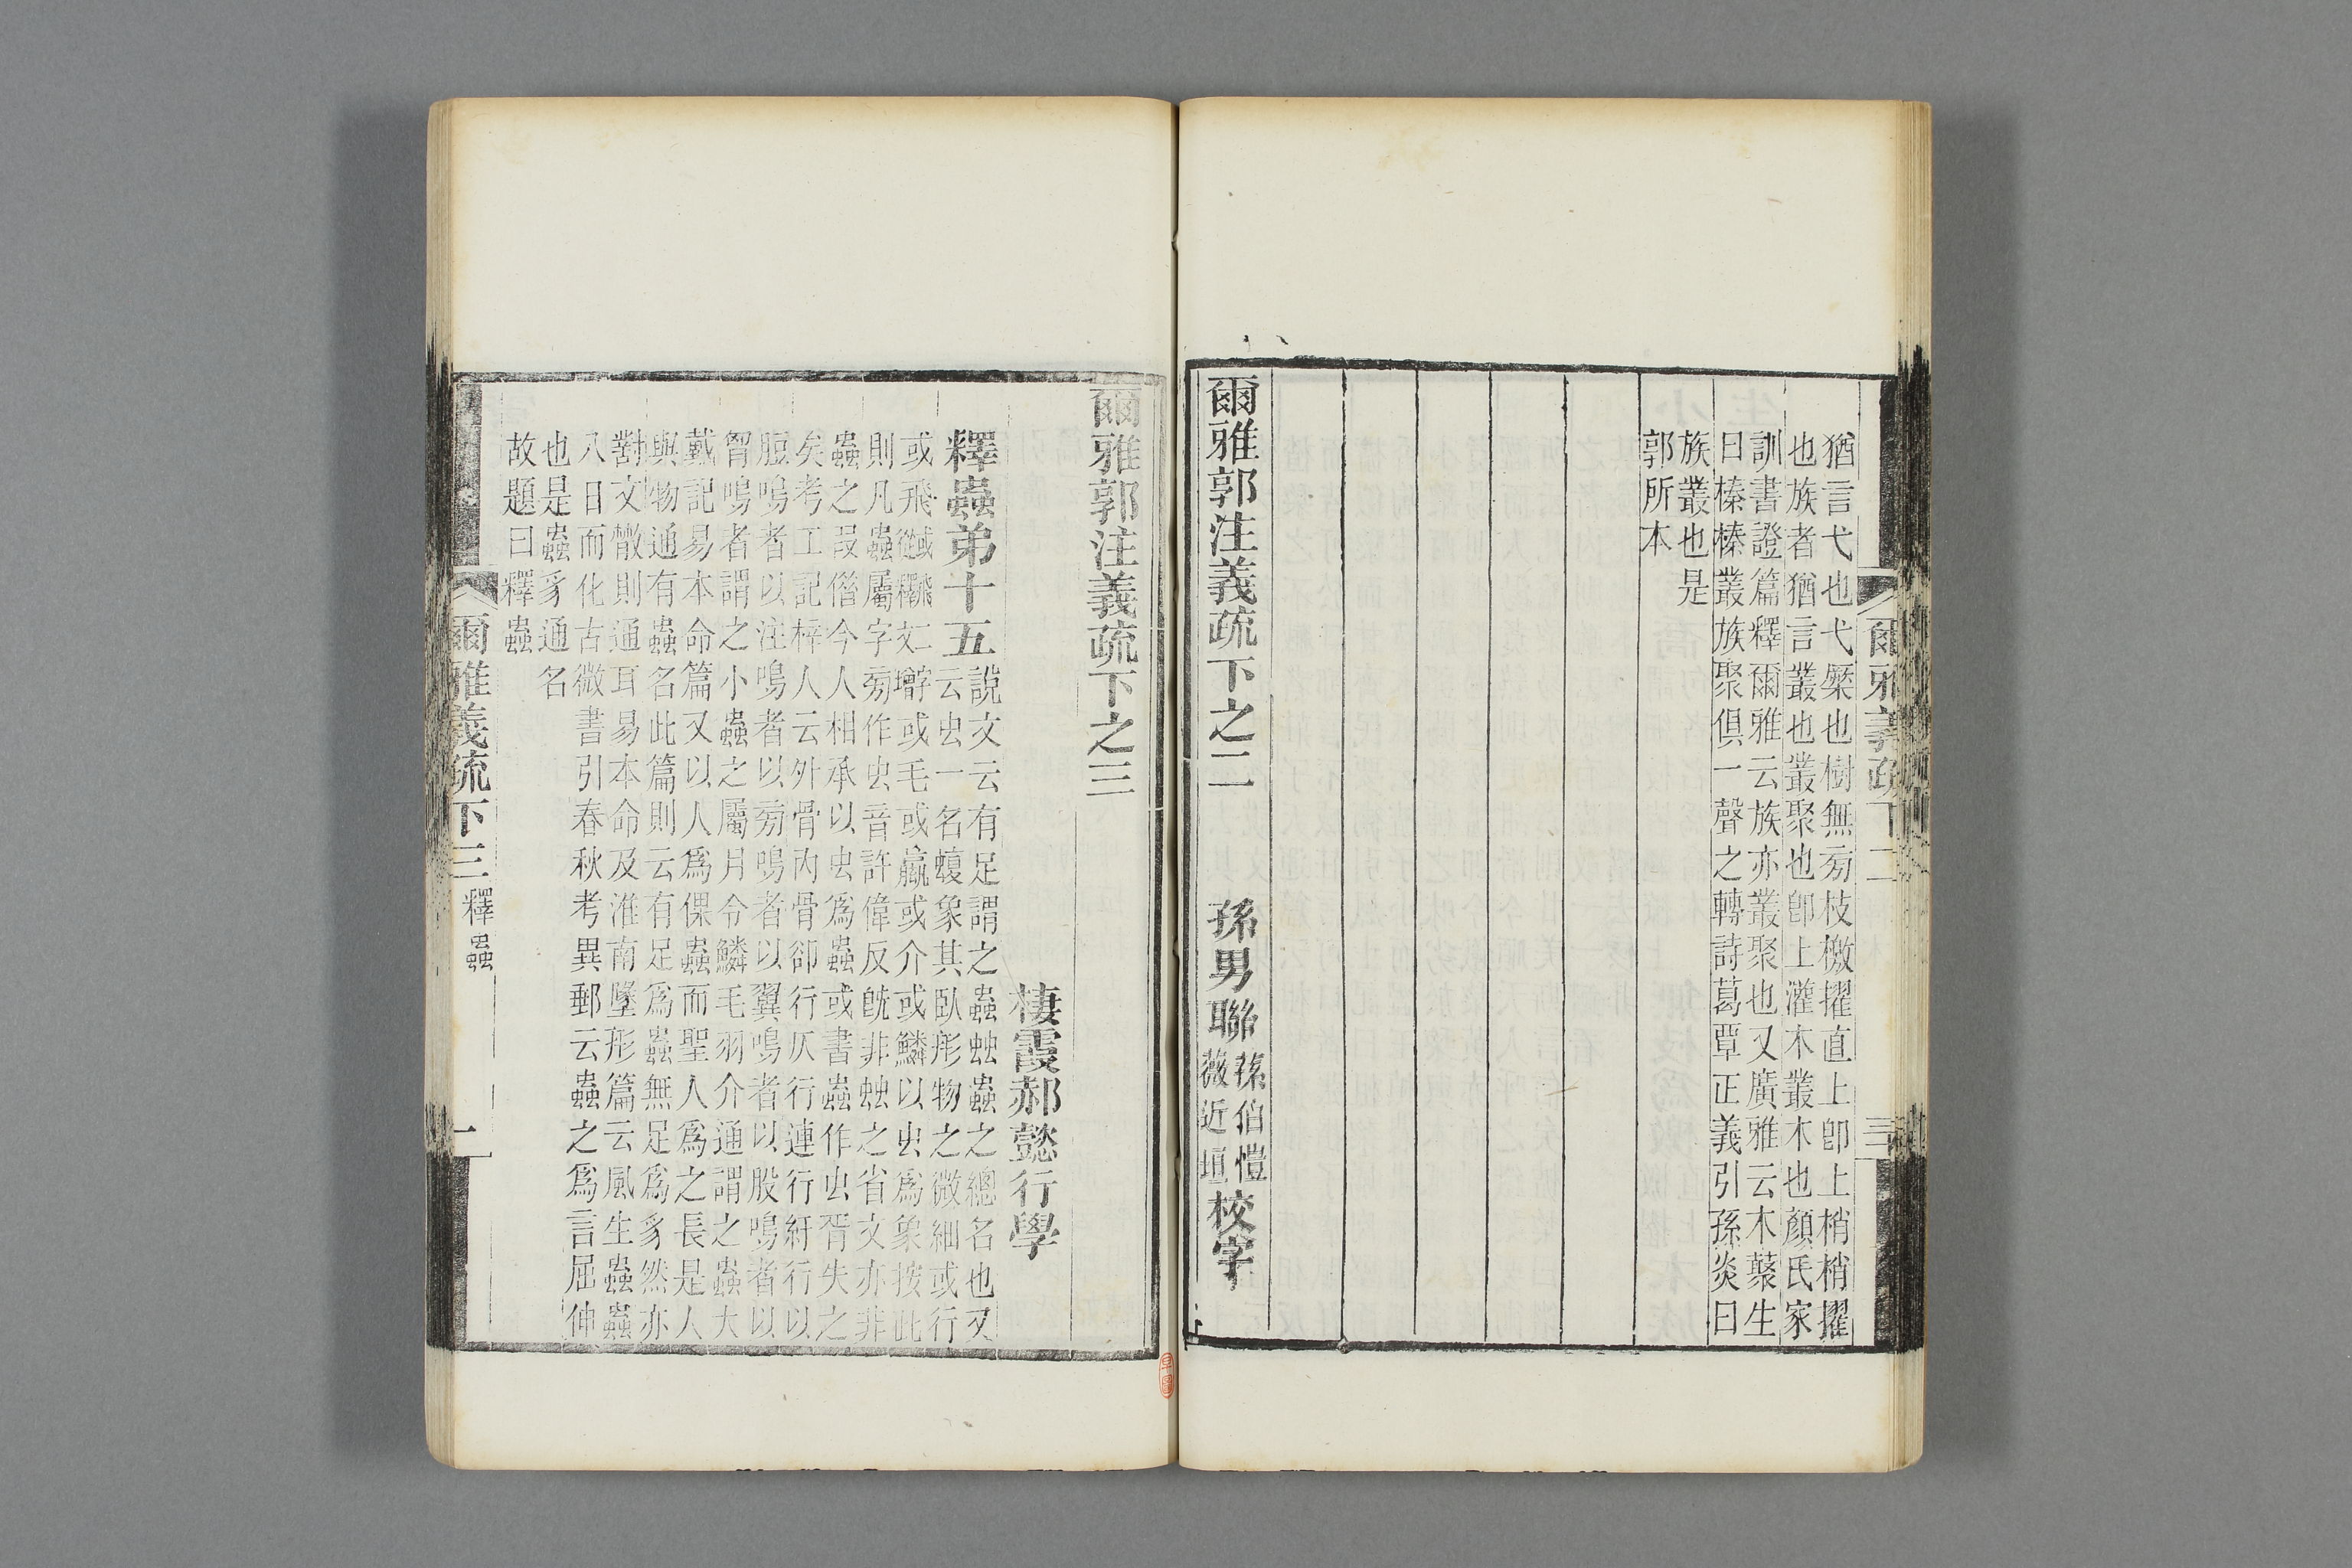 爾雅義疏下二
三
猶言弋也弋橜也樹無㫄枝檄擢直上卽上梢梢擢
也族者猶言叢也叢聚也卽上灌木叢木也顏氏家
訓書證篇釋爾雅云族亦叢聚也又廣雅云木藂生
曰榛榛叢族聚俱一聲之轉詩葛覃正義引孫炎曰
族叢也是
郭所本
爾雅郭注義疏下之二 孫男聯孫伯愷薇近垣校字
爾雅郭注義疏下之三
棲霞郝懿行學
釋蟲弟十五
說文云有足謂之蟲䖵蟲之總名也又
云虫一名蝮象其臥形物之微細或行
或飛或毛或蠃或介或鱗以虫爲象按此
則凡蟲屬字㫄作虫音許偉反旣非䖵之省文亦非
蟲之叚借今人相承以虫爲蟲或書蟲作虫胥失之
矣考工記梓人云外骨內骨卻行仄行連行紆行以
脰鳴者以注鳴者以㫄鳴者以翼鳴者以股鳴者以
胷鳴者謂之小蟲之屬月令鱗毛羽介通謂之蟲大
戴記易本命篇又以人爲倮蟲而聖人爲之長是人
與物通有蟲名此篇則云有足爲蟲無足爲豸然亦
對文散則通耳易本命及淮南墬形篇云風生蟲蟲
八日而化古微書引春秋考異郵云蟲之爲言屈伸
也是蟲豸通名
故題曰釋蟲
爾雅義疏下三 釋蟲
一